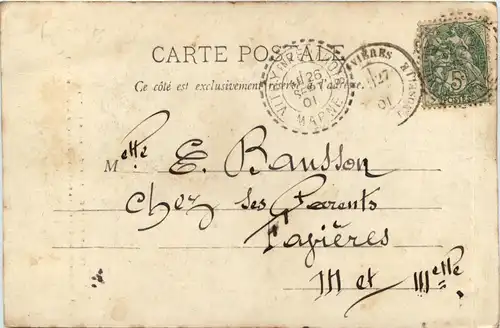 CARTE POSTALE
Ce côté est exclusivement réservé à l'adresse.
26
01
MARNE
27
01
5
Melle E. Bausson
Chez ses Parents
Favières
M et Melle